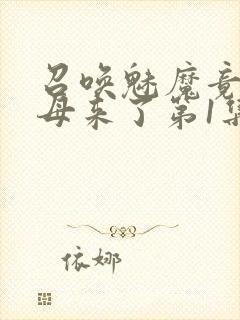 召唤魅魔竟
母来了第1集
依娜